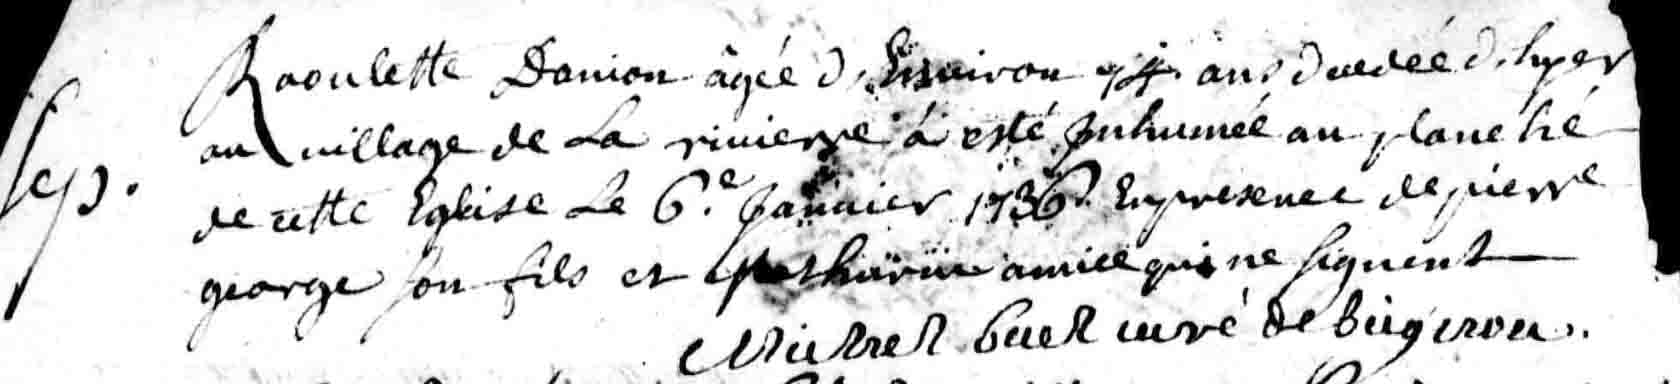 Raoulette Danion âgée d'Environ 74 ans decedée d'hyer
au village de La rivierre á esté Jnhumée au planché
Sep. de cette Eglise Le 6.e Janvier 1736. En presence de pierre
george son fils et Mathurin amice qui ne signent
Michel buel curé de